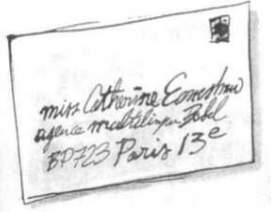 miss Catherine
agence multilingue Babel
BP723 Paris 13e